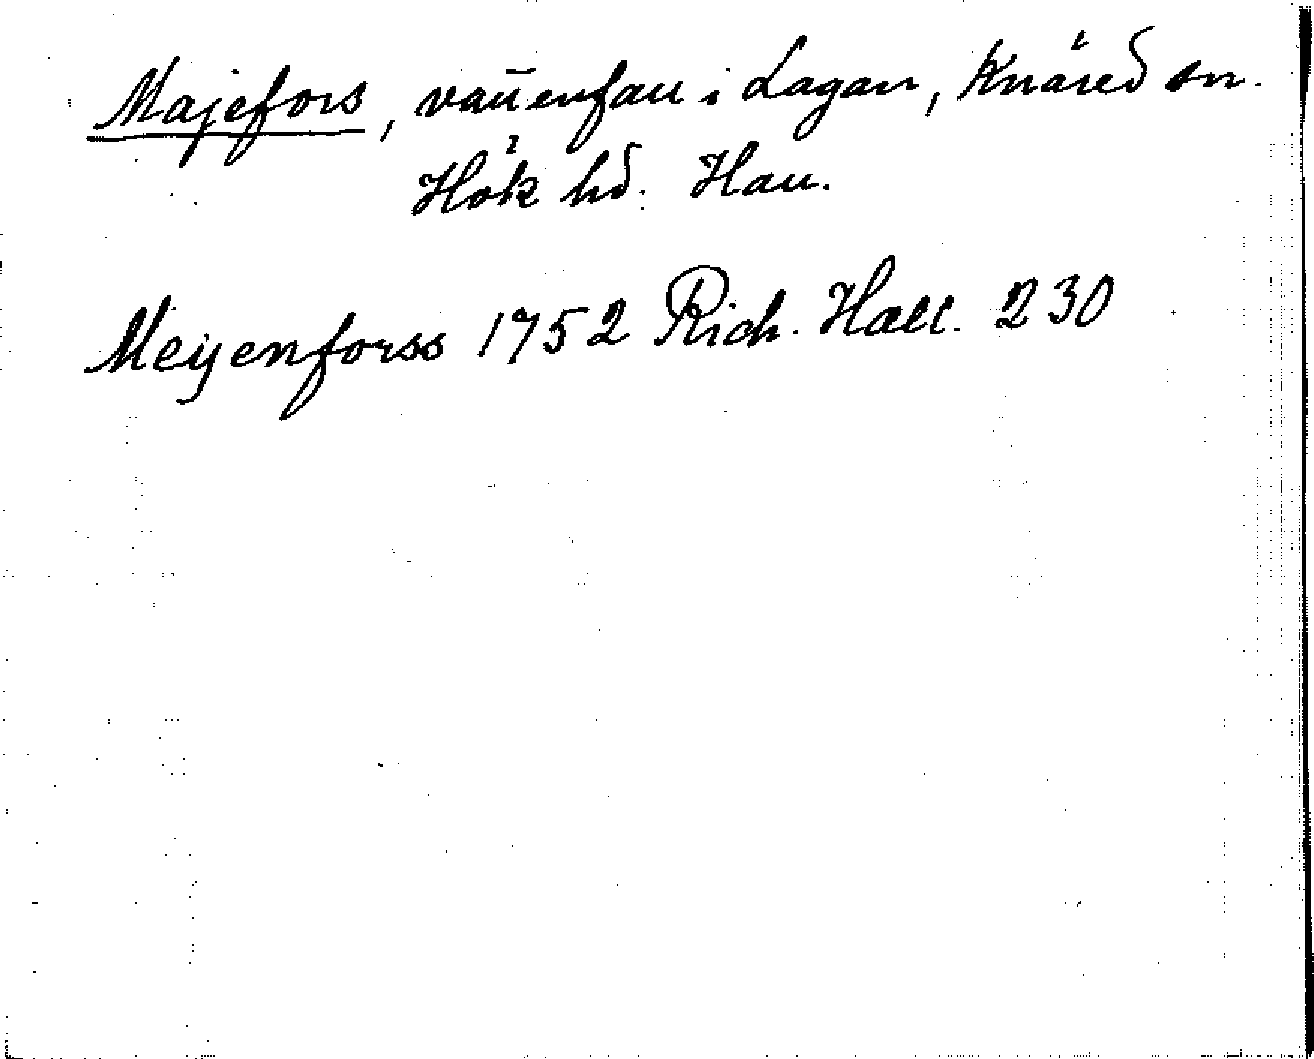 Majefors, vattenfall i Lagan, Knäred sn.
Hök hd. Hall.
Meijenforss 1752 Rich. Hall. 230